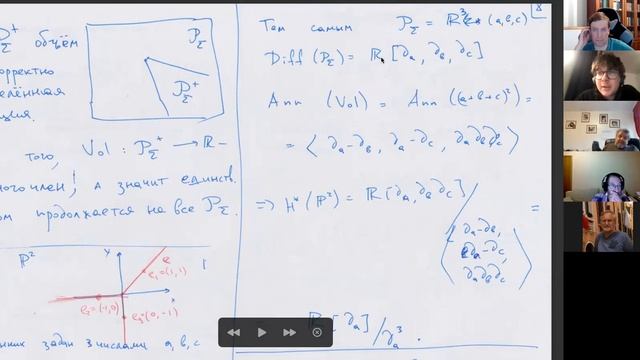 𝒫_Σ^+ объём
корректно
делённая
кция.
𝒫_Σ
𝒫_Σ^+
того, Vol : 𝒫_Σ^+ → ℝ –
многочлен! а значит единств.
ом продолжается на все 𝒫_Σ.
ℙ²
y
x
e
e₁=(1,1)
e₂=(-1,0)
e₃=(0,-1)
1
зада 3 числами a, b, c
8
Тем самым 𝒫_Σ = ℝ³ (a,b,c)
Diff (𝒫_Σ) = ℝ [∂a, ∂b, ∂c]
Ann (Vol) = Ann ((a+b+c)²) =
= ⟨ ∂a-∂b, ∂a-∂c, ∂a∂b∂c ⟩
⇒ H*(ℙ²) = ℝ[∂a,∂b,∂c] / ⟨ ∂a-∂b, ∂a-∂c, ∂a∂b∂c ⟩ =
ℝ[∂a]/∂a³.